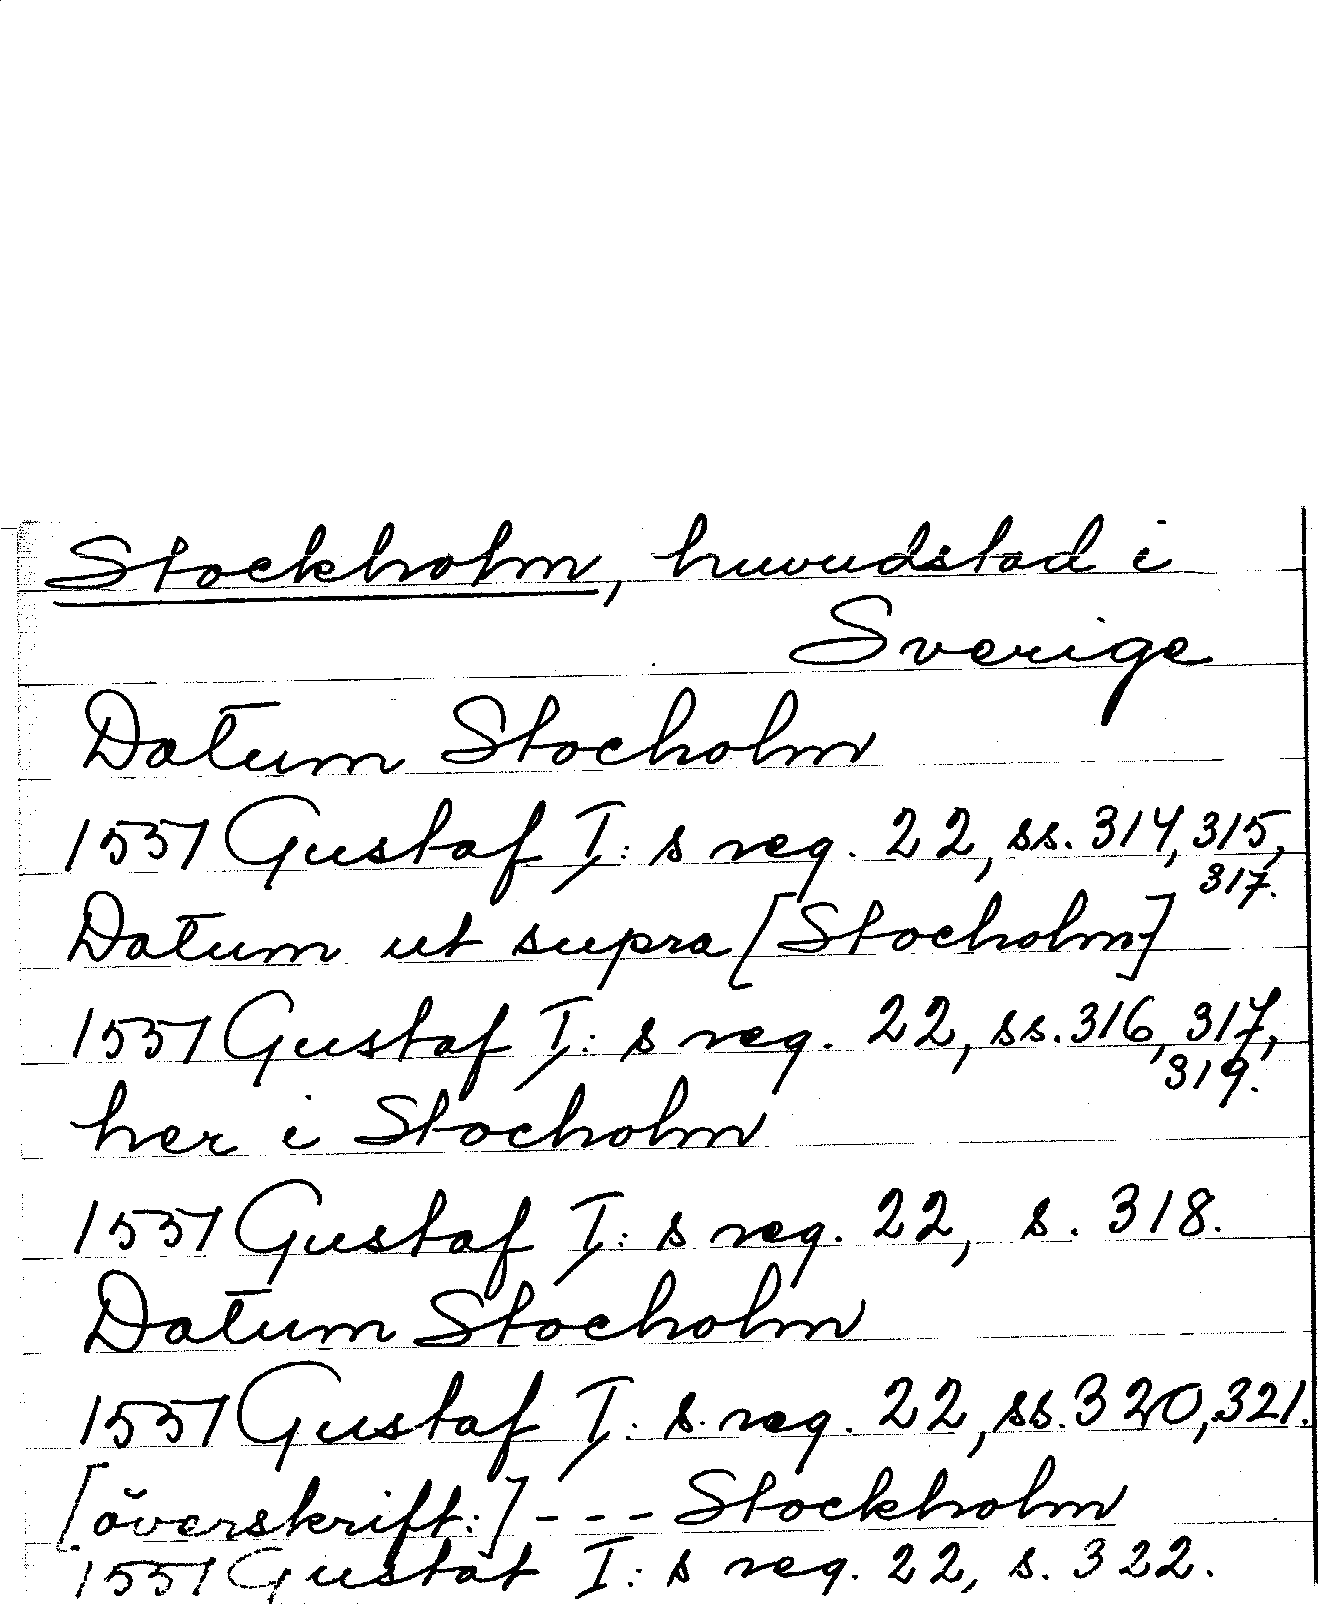 Stockholm, huvudstad i
Sverige
Datum Stocholm
1551 Gustaf I: s reg. 22, ss. 314, 315,
317.
Datum ut supra [Stocholm]
1551 Gustaf I: s reg. 22, ss. 316, 317,
319.
her i Stocholm
1551 Gustaf I: s reg. 22, s. 318.
Datum Stocholm
1551 Gustaf I: s. reg. 22, ss. 320, 321.
[överskrift:] - - - Stockholm
1551 Gustaf I: s reg. 22, s. 322.